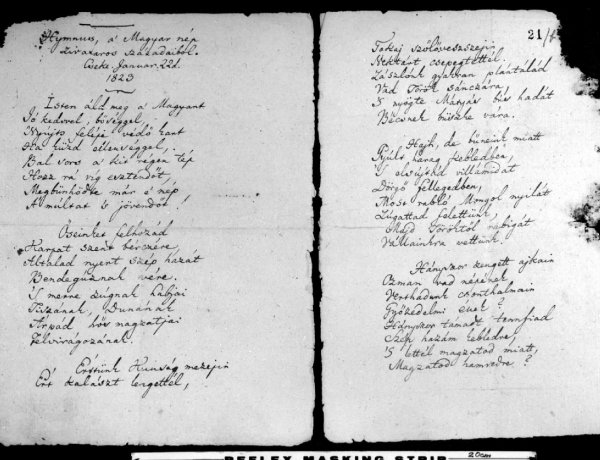 Hymnus, a' Magyar nép
zivataros századaiból.
Cseke. Januar. 22d.
1823
Isten áldd meg a' Magyart
Jó kedvvel, bőséggel,
Nyújts feléje védő kart
Ha küzd ellenséggel,
Bal sors a' kit régen tép
Hozz rá víg esztendőt,
Megbűnhödte már e' nép
A' múltat 's jövendőt!
Őseinket felhozád
Kárpát szent bérczére,
Általad nyert szép hazát
Bendegúznak vére.
'S merre zúgnak habjai
Tiszának, Dunának
Árpád hős magzatjai
Felvirágozának.
Értünk Kunság mezején
Ért kalászt lengettél,
21/
Tokaj szőlővesszein
Nektárt csepegtettél.
Zászlónk gyakran plántálád
Vad Török sánczára
'S nyögte Mátyás bús hadát
Bécsnek büszke vára.
Hajh, de bűneink miatt
Gyúlt harag kebledben,
'S elsújtád villámidat
Dörgő fellegedben,
Most rabló Mongol nyilát
Zúgattad felettünk,
Majd Töröktől rabigát
Vállainkra vettünk.
Hányszor zengett ajkain
Ozmán vad népének
Vert hadunk csonthalmain
Győzedelmi ének?
Hányszor támadt tennfiad
Szép hazám kebledre,
'S lettél magzatod miatt,
Magzatod hamvedre?
REFLEX MASKING STRIP 20cm